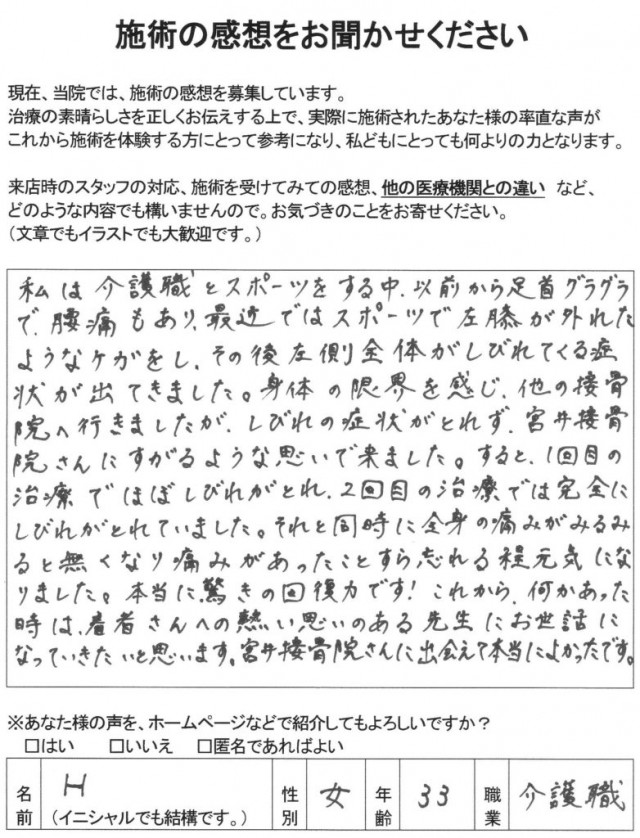 施術の感想をお聞かせください
現在、当院では、施術の感想を募集しています。
治療の素晴らしさを正しくお伝えする上で、実際に施術されたあなた様の率直な声が
これから施術を体験する方にとって参考になり、私どもにとっても何よりの力となります。
来店時のスタッフの対応、施術を受けてみての感想、他の医療機関との違い など、
どのような内容でも構いませんので。お気づきのことをお寄せください。
（文章でもイラストでも大歓迎です。）
私は介護職とスポーツをする中、以前から足首グラグラ
で、腰痛もあり、最近ではスポーツで左膝が外れた
ようなケガをし、その後左側全体がしびれてくる症
状が出てきました。身体の限界を感じ、他の接骨
院へ行きましたが、しびれの症状がとれず、宮井接骨
院さんにすがるような思いで来ました。すると、1回目の
治療でほぼしびれがとれ、2回目の治療では完全に
しびれがとれていました。それと同時に全身の痛みがみるみ
ると無くなり痛みがあったことすら忘れる程元気にな
りました。本当に驚きの回復力です！これから、何かあった
時は、患者さんへの熱い思いのある先生にお世話に
なっていきたいと思います。宮井接骨院さんに出会えて本当によかったです。
※あなた様の声を、ホームページなどで紹介してもよろしいですか？
□はい □いいえ □匿名であればよい
名前 H （イニシャルでも結構です。） 性別 女 年齢 33 職業 介護職